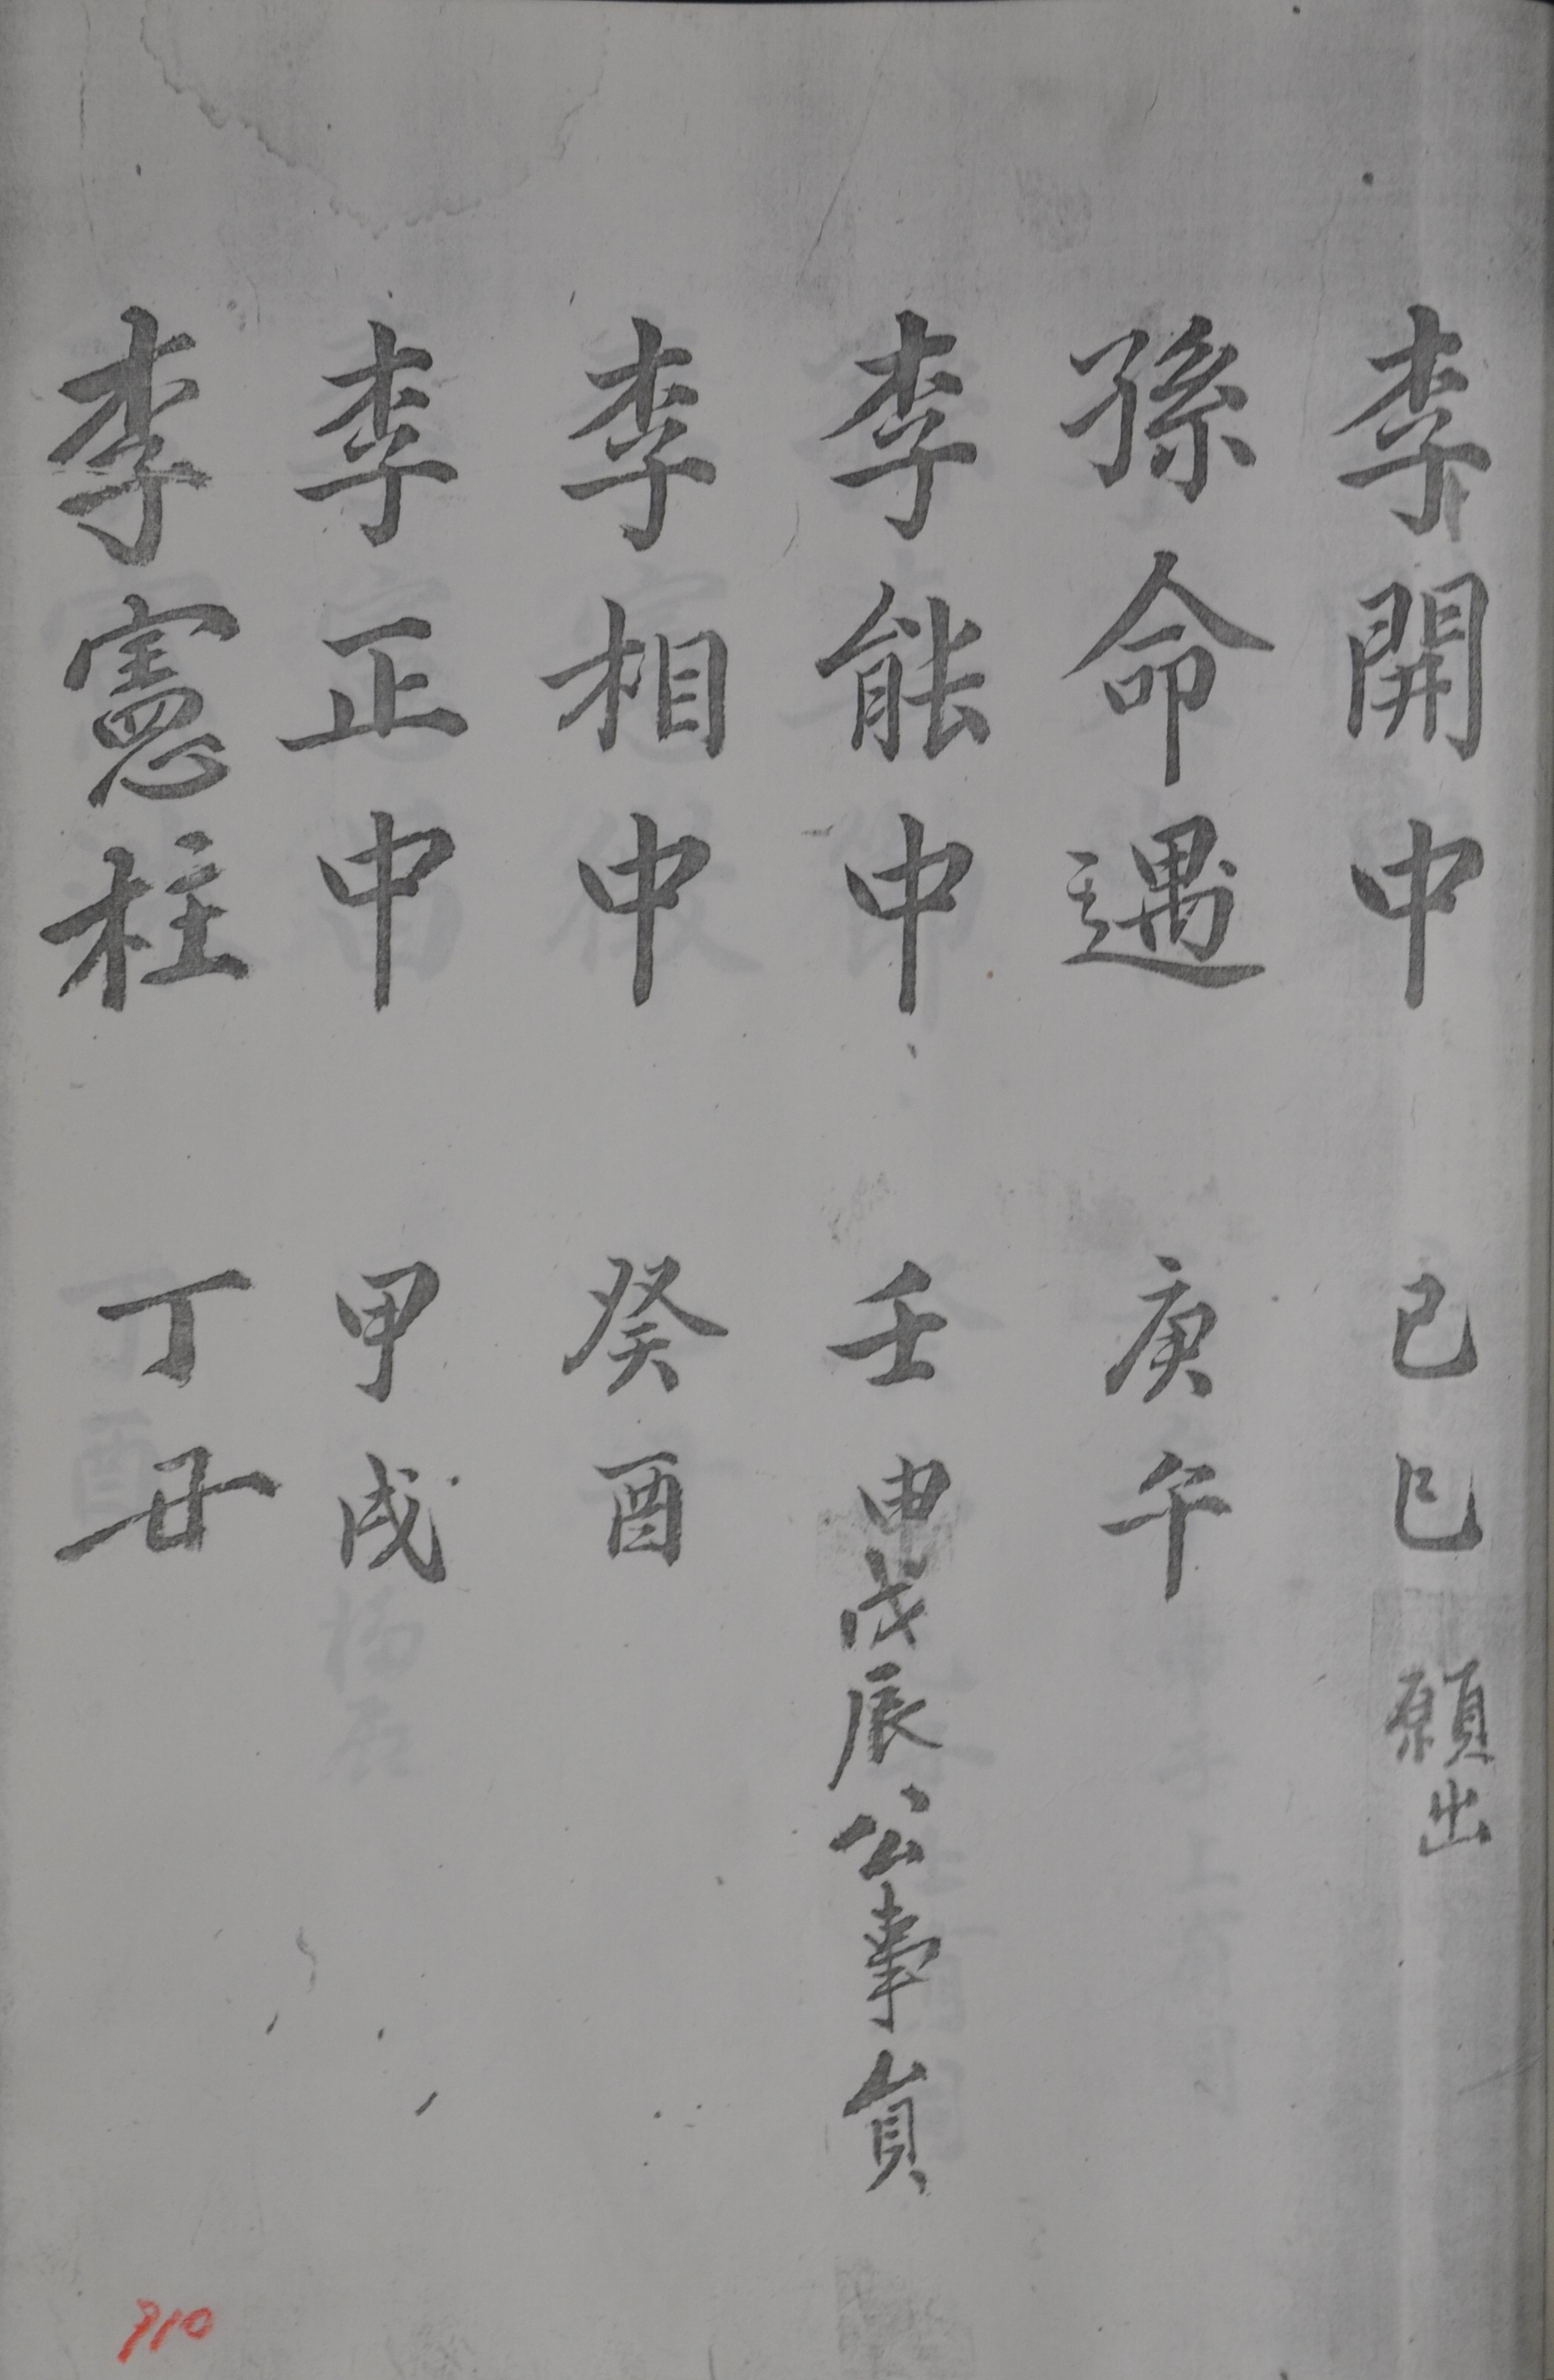 李開中 己巳 願出
孫命遇 庚午
李能中 壬申 戊辰公事貟
李相中 癸酉
李正中 甲戌
李憲柱 丁丑
910